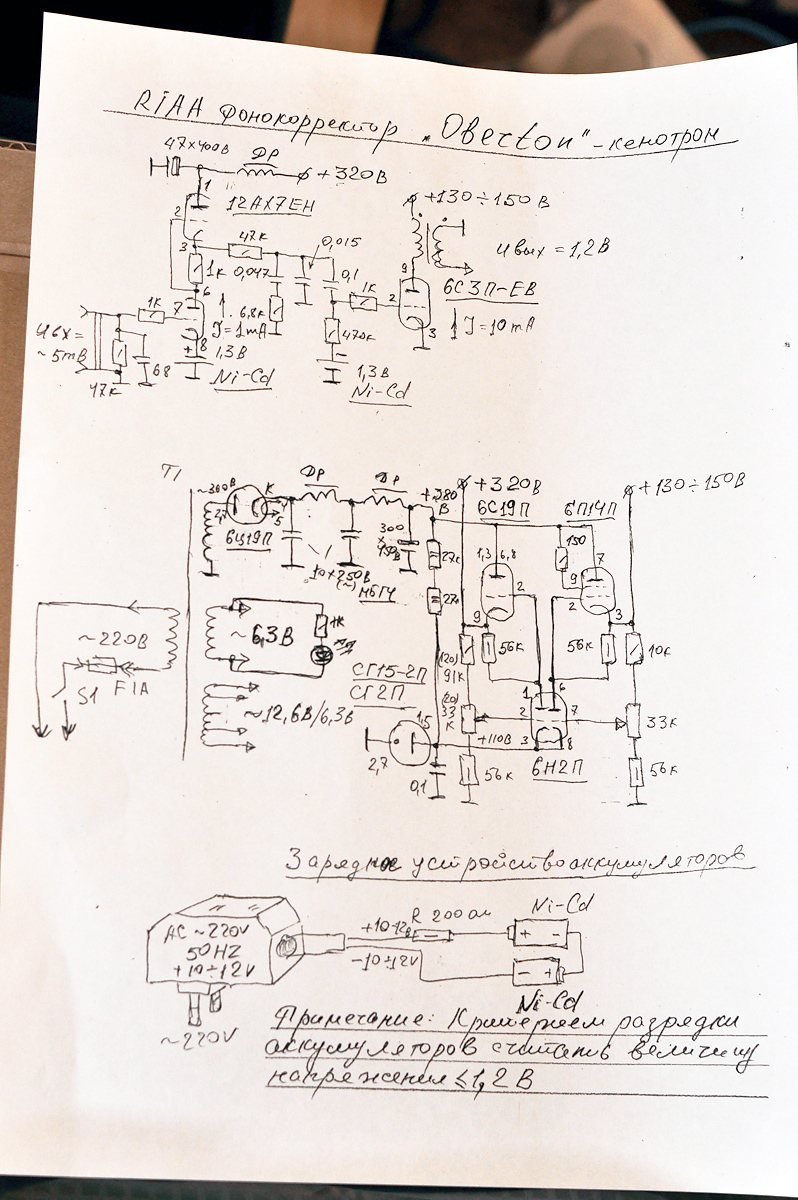 RIAA фонокорректор „Oberton" - кенотрон
47×400В
Др
+320В
1
12AX7EH
2
3
47к
0,015
1к
0,047
0,1
1к
6
1к
7
6,8к
I=1mA
8
+
1,3В
Ni-Cd
Uвх=
~5mВ
47к
68
470к
-
1,3В
Ni-Cd
+130÷150В
Uвых=1,2В
9
2
6С3П-ЕВ
I=10mA
3
T1
~300В
2,7
К
4
5
6Ц19П
Др
Др
10×250В
(~)
МБГЧ
300
×
450В
+380
В
+320В
6С19П
6П14П
+130÷150В
27к
27к
1,3
6,8
2
9
150
9
7
2
3
~220В
S1
F1A
~6,3В
1к
~12,6В/6,3В
СГ15-2П
СГ2П
1,5
2,7
0,1
+110В
(120)
91к
56к
56к
10к
(20)
33
к
1
6
2
7
3
8
6Н2П
33к
56к
56к
Зарядное устройство аккумуляторов
AC ~220V
50HZ
+10÷12V
~220V
+10-12в
R 200 ом
-10÷12V
Ni-Cd
+ -
- +
Ni-Cd
Примечание: Критерием разрядки
аккумуляторов считать величину
напряжения ≤1,2 В